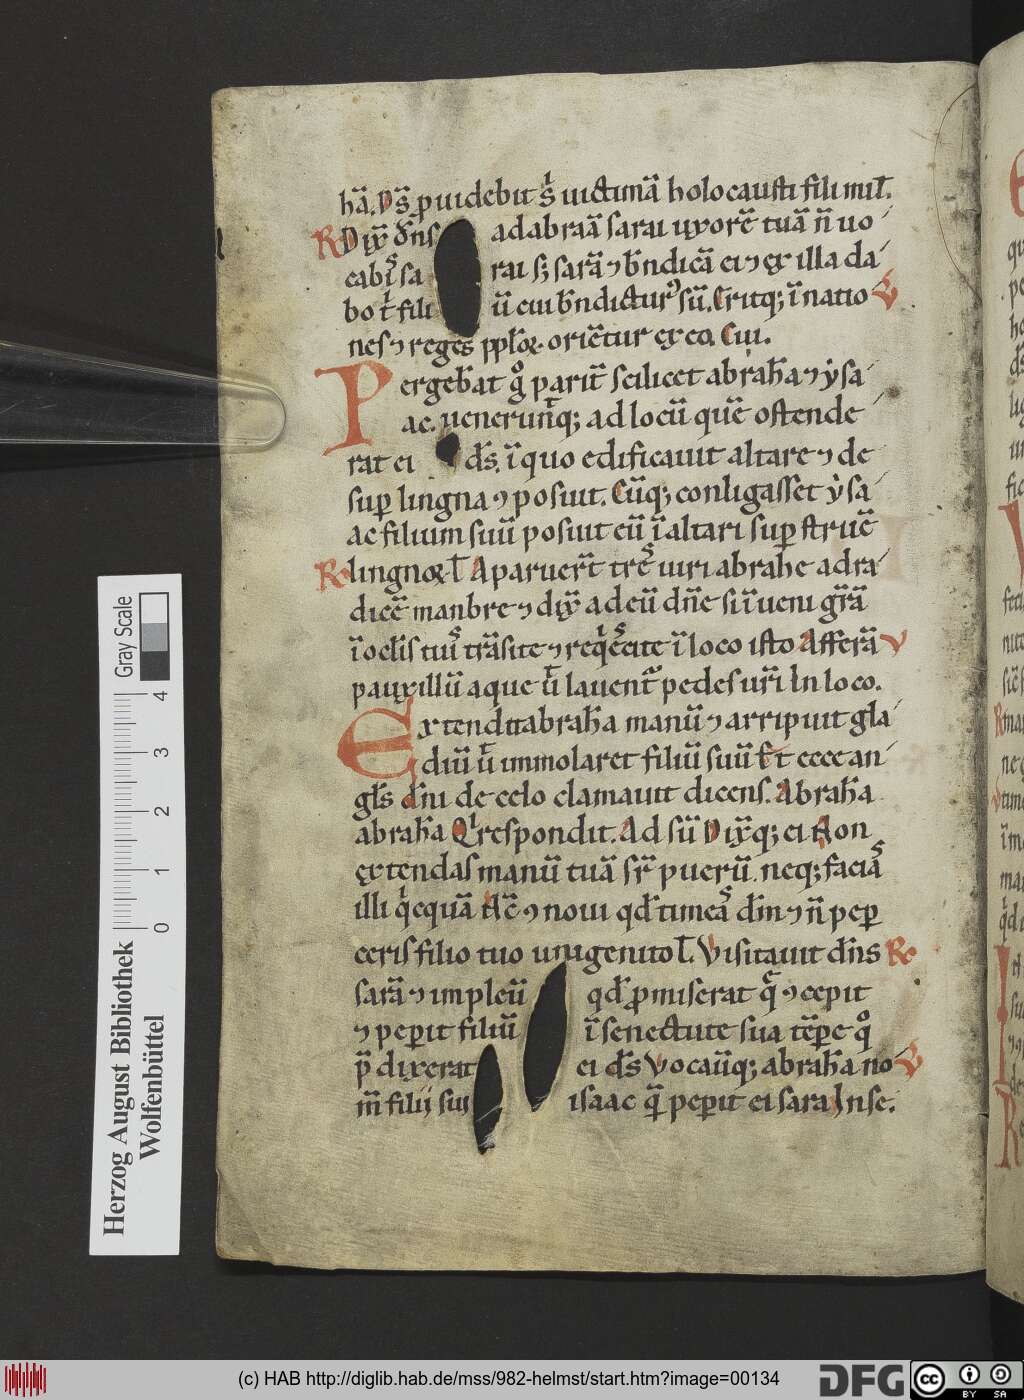 hā. Ds̄ puidebit s̄ uictimā holocausti fili mił.
R Dix̄ dn̄s ad abraā sarai uxorē tuā n̄ uo
cabis sa rai sꝫ sarā ⁊ bn̄dicā ei ⁊ ex illa da
bo t fili ū cui bn̄dictur᷒ sū. Eritqꝫ ī natio V
nes ⁊ reges pploꝝ orient̄ur ex eo. Cui.
Pergebāt gͦ parit̄ scilicet abrah̄a ⁊ ẏsa
ac. ueneruntqꝫ ad locū quē ostende
rat ei ds̄. ī quo edificauit altare ⁊ de
sup lingna ⁊ posuit. Cūqꝫ conligasset ẏsa
ac filium suū posuit eū ī altari sup struē
R lingnoꝝ ł Aparuer̄t tres uiri abrahe ad ra
dicē manbre ⁊ dix̄ ad eū dn̄e si īueni gr̄ā
ī oclis tuis trāsite ⁊ reqiescite ī loco isto Afferā V
pauxillū aque ut lauent᷑ pedes uri In loco.
Extendit abrah̄a manū ⁊ arripuit gla
diū ut immolaret filiū suū Et ecce an
gls dn̄i de celo clamauit dicens. Abrah̄a
abrah̄a Qi respondit. Ad sū Dix̄qꝫ ei Non
extendas manū tuā sr̄ puerū. neqꝫ facias
illi qicquā Nc̄ ⁊ noui qd timeas dm̄ ⁊ n̄ peꝑ
ceris filio tuo unigenito ł. Visitauit dn̄s R
sarā ⁊ impleu̅ qd promiserat q̄ ⁊ cepit
⁊ peperit filiū ī senectute sua tēpe qͦ
p̄dixerat ei ds̄ Vocauitqꝫ abrah̄a no V
m̄ filii sui isaac q̄ peperit ei sara In se.
Gray Scale
0 1 2 3 4
Herzog August Bibliothek
Wolfenbüttel
(c) HAB http://diglib.hab.de/mss/982-helmst/start.htm?image=00134
DFG
cc
BY SA